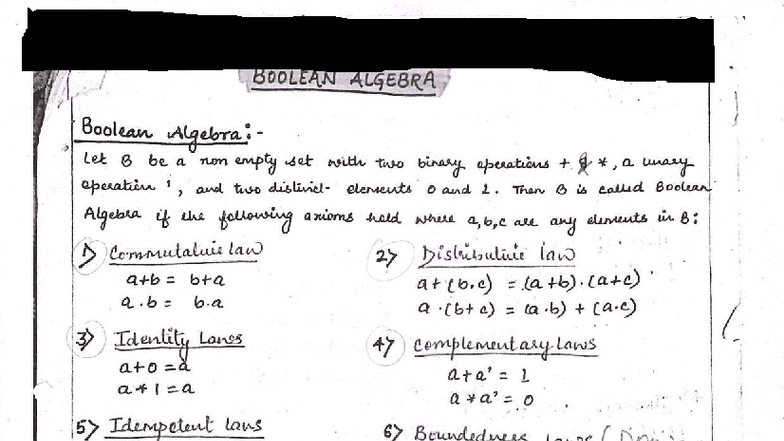 BOOLEAN ALGEBRA
Boolean Algebra:-
Let B be a non empty set with two binary operations + & *, a unary
operation ', and two distinct elements 0 and 1. Then B is called Boolean
Algebra if the following axioms hold where a,b,c are any elements in B:
1) Commutative law
a+b = b+a
a.b = b.a
2) Distributive law
a+(b.c) = (a+b).(a+c)
a.(b+c) = (a.b)+(a.c)
3) Identity Laws
a+0 = a
a*1 = a
4) Complementary Laws
a+a' = 1
a*a' = 0
5) Idempotent laws
6) Boundedness Laws (